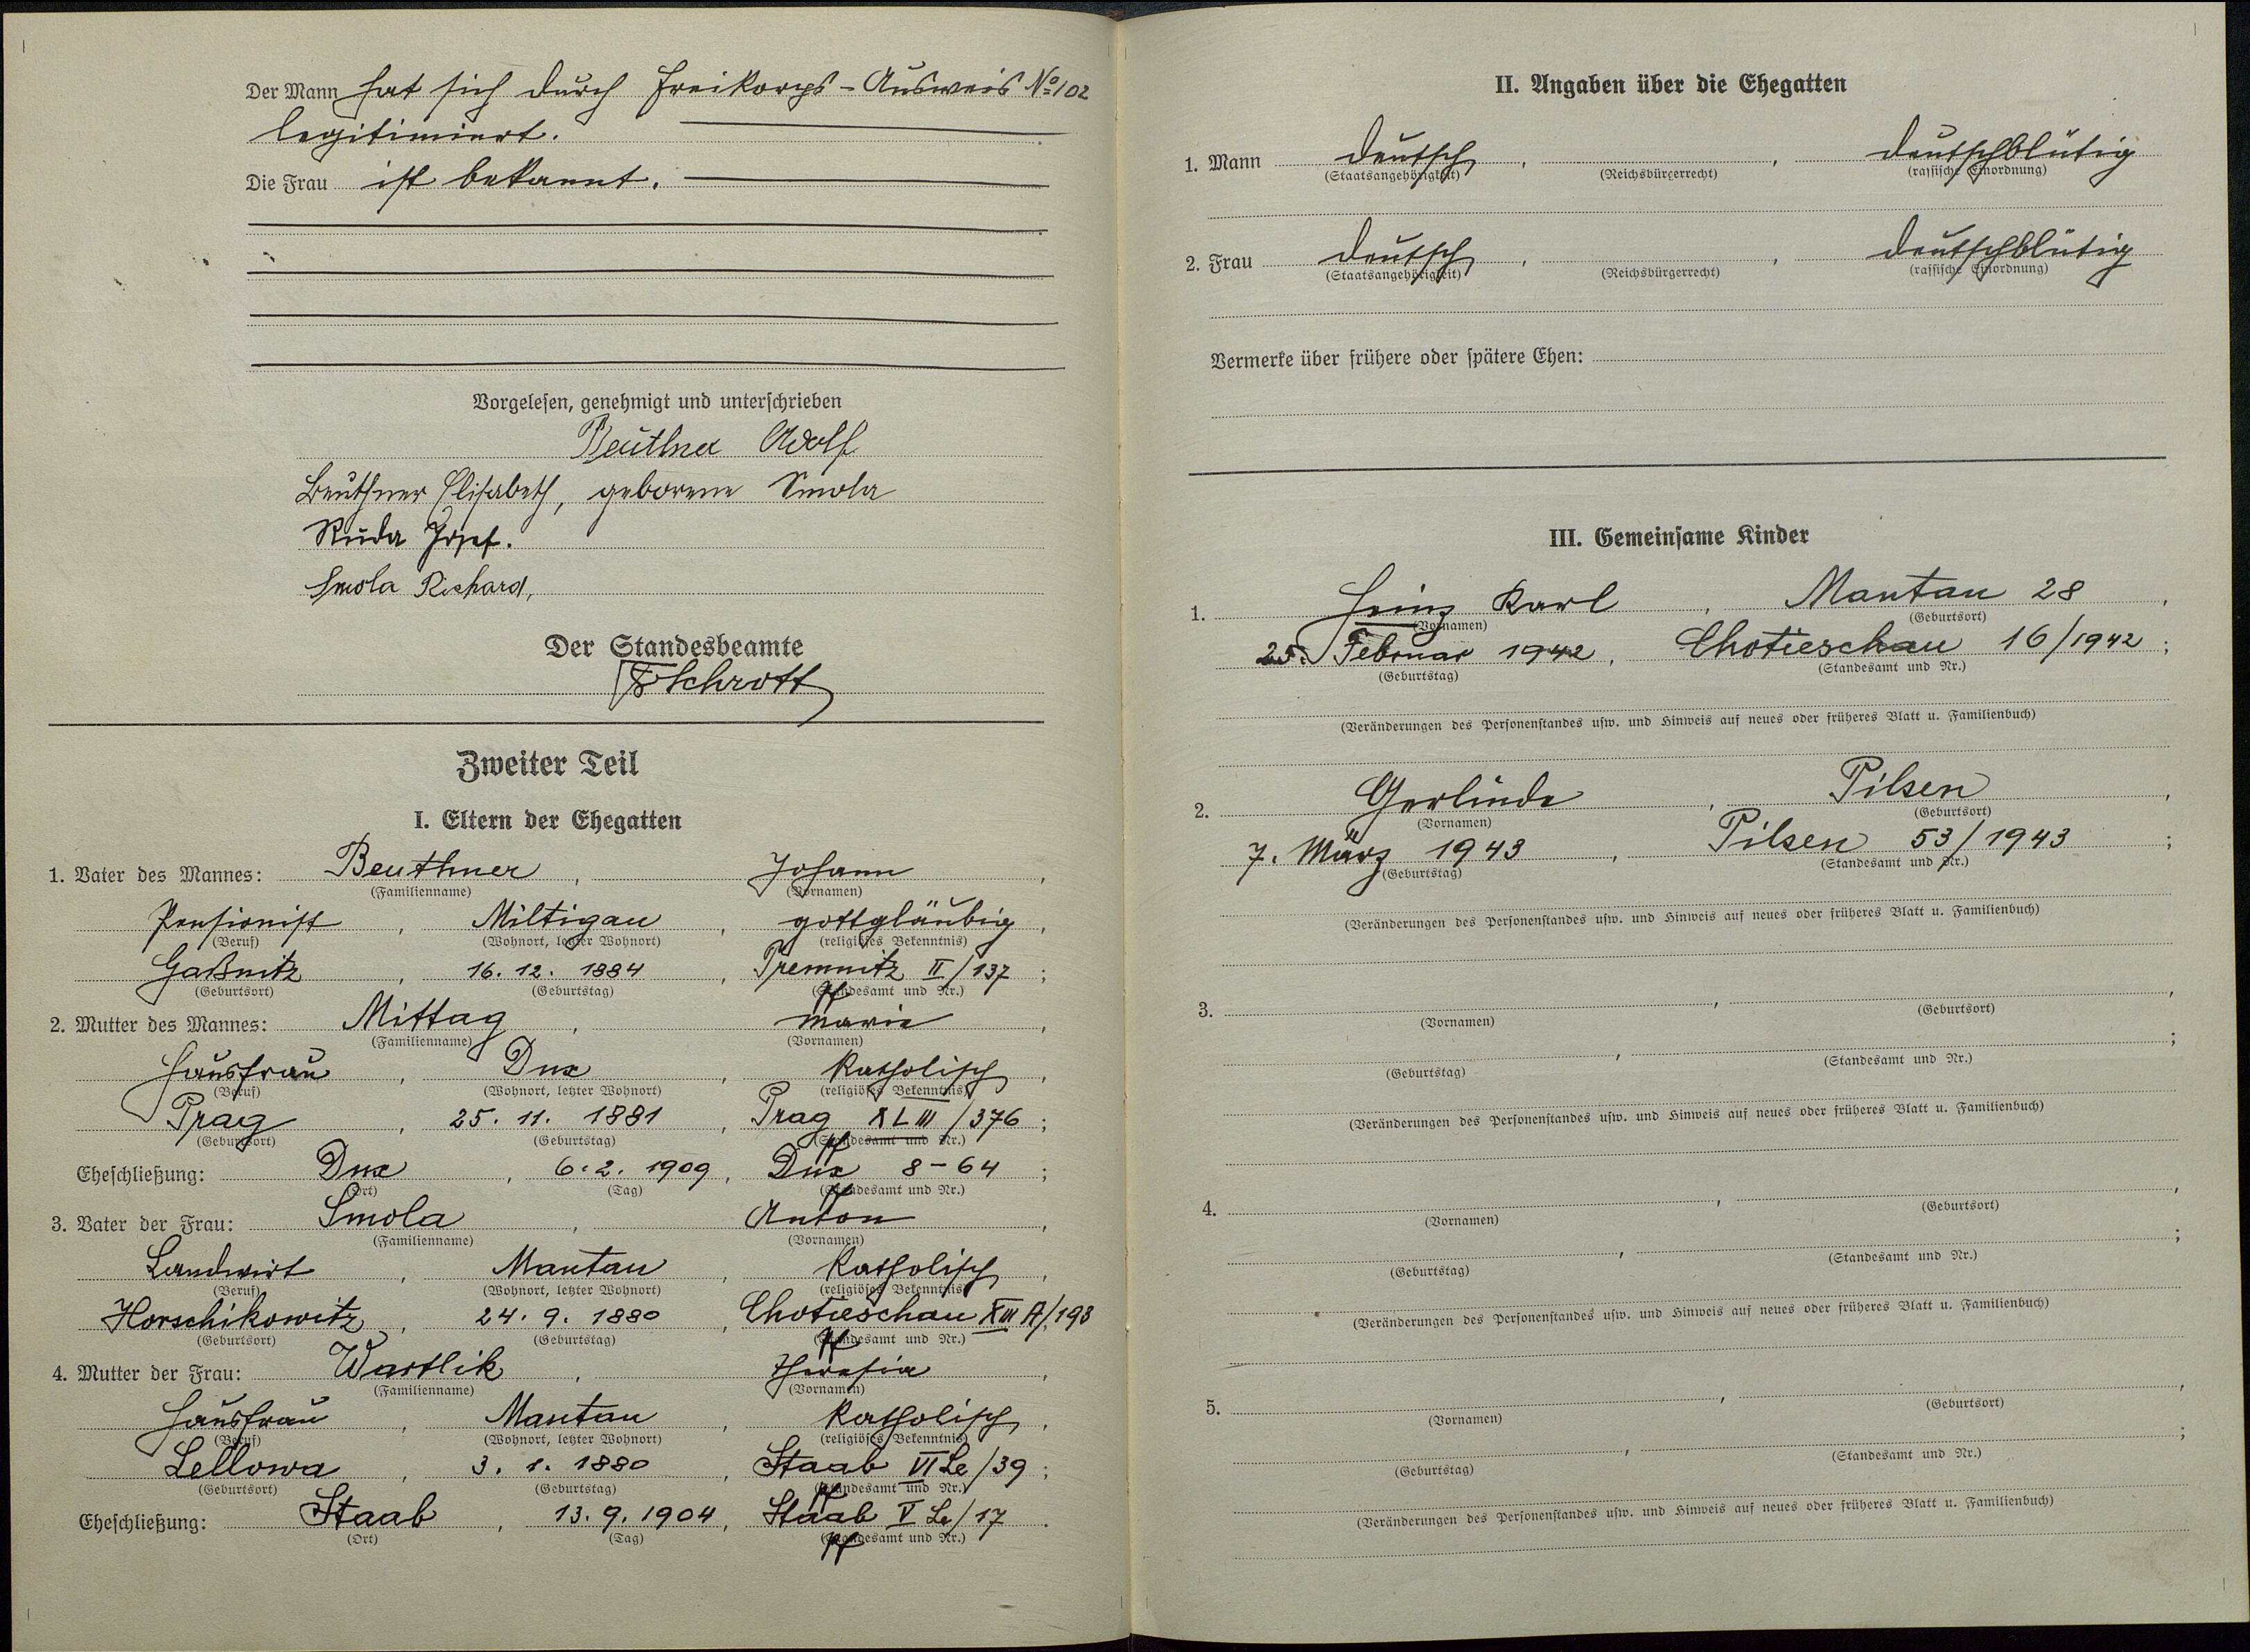 Der Mann hat sich durch Freikorps-Ausweis No 102
legitimiert.
Die Frau ist bekannt.
Vorgelesen, genehmigt und unterschrieben
Beuthner Adolf
Beuthner Elisabeth, geborene Smola
Ruda Josef.
Smola Richard,
Der Standesbeamte
Schrott
Zweiter Teil
I. Eltern der Ehegatten
1. Vater des Mannes: Beuthner, Johann,
(Familienname) (Vornamen)
Pensionist, Miltigau, gottgläubig,
(Beruf) (Wohnort, letzter Wohnort) (religiöses Bekenntnis)
Gaßnitz, 16. 12. 1884, Tremnitz II/137;
(Geburtsort) (Geburtstag) (Standesamt und Nr.)
2. Mutter des Mannes: Mittag, Marie,
(Familienname) (Vornamen)
Hausfrau, Dux, katholisch,
(Beruf) (Wohnort, letzter Wohnort) (religiöses Bekenntnis)
Prag, 25. 11. 1881, Prag XLIII/376;
(Geburtsort) (Geburtstag) (Standesamt und Nr.)
Eheschließung: Dux, 6. 2. 1909, Dux 8-64;
(Ort) (Tag) (Standesamt und Nr.)
3. Vater der Frau: Smola, Anton,
(Familienname) (Vornamen)
Landwirt, Mantau, katholisch,
(Beruf) (Wohnort, letzter Wohnort) (religiöses Bekenntnis)
Horschikowitz, 24. 9. 1880, Chotieschau XIII A/193
(Geburtsort) (Geburtstag) (Standesamt und Nr.)
4. Mutter der Frau: Wastlik, Theresia,
(Familienname) (Vornamen)
Hausfrau, Mantau, katholisch,
(Beruf) (Wohnort, letzter Wohnort) (religiöses Bekenntnis)
Lellowa, 3. 1. 1880, Staab VI Le/39;
(Geburtsort) (Geburtstag) (Standesamt und Nr.)
Eheschließung: Staab, 13. 9. 1904, Staab V Le/17.
(Ort) (Tag) (Standesamt und Nr.)
II. Angaben über die Ehegatten
1. Mann deutsch, , deutschblütig
(Staatsangehörigkeit) (Reichsbürgerrecht) (rassische Einordnung)
2. Frau deutsch, , deutschblütig
(Staatsangehörigkeit) (Reichsbürgerrecht) (rassische Einordnung)
Vermerke über frühere oder spätere Ehen:
III. Gemeinsame Kinder
1. Heinz Karl, Mantau 28,
(Vornamen) (Geburtsort)
25. Februar 1942, Chotieschau 16/1942;
(Geburtstag) (Standesamt und Nr.)
(Veränderungen des Personenstandes usw. und Hinweis auf neues oder früheres Blatt u. Familienbuch)
2. Gerlinde, Pilsen,
(Vornamen) (Geburtsort)
7. März 1943, Pilsen 53/1943;
(Geburtstag) (Standesamt und Nr.)
(Veränderungen des Personenstandes usw. und Hinweis auf neues oder früheres Blatt u. Familienbuch)
3. , ,
(Vornamen) (Geburtsort)
, ;
(Geburtstag) (Standesamt und Nr.)
(Veränderungen des Personenstandes usw. und Hinweis auf neues oder früheres Blatt u. Familienbuch)
4. , ,
(Vornamen) (Geburtsort)
, ;
(Geburtstag) (Standesamt und Nr.)
(Veränderungen des Personenstandes usw. und Hinweis auf neues oder früheres Blatt u. Familienbuch)
5. , ,
(Vornamen) (Geburtsort)
, ;
(Geburtstag) (Standesamt und Nr.)
(Veränderungen des Personenstandes usw. und Hinweis auf neues oder früheres Blatt u. Familienbuch)